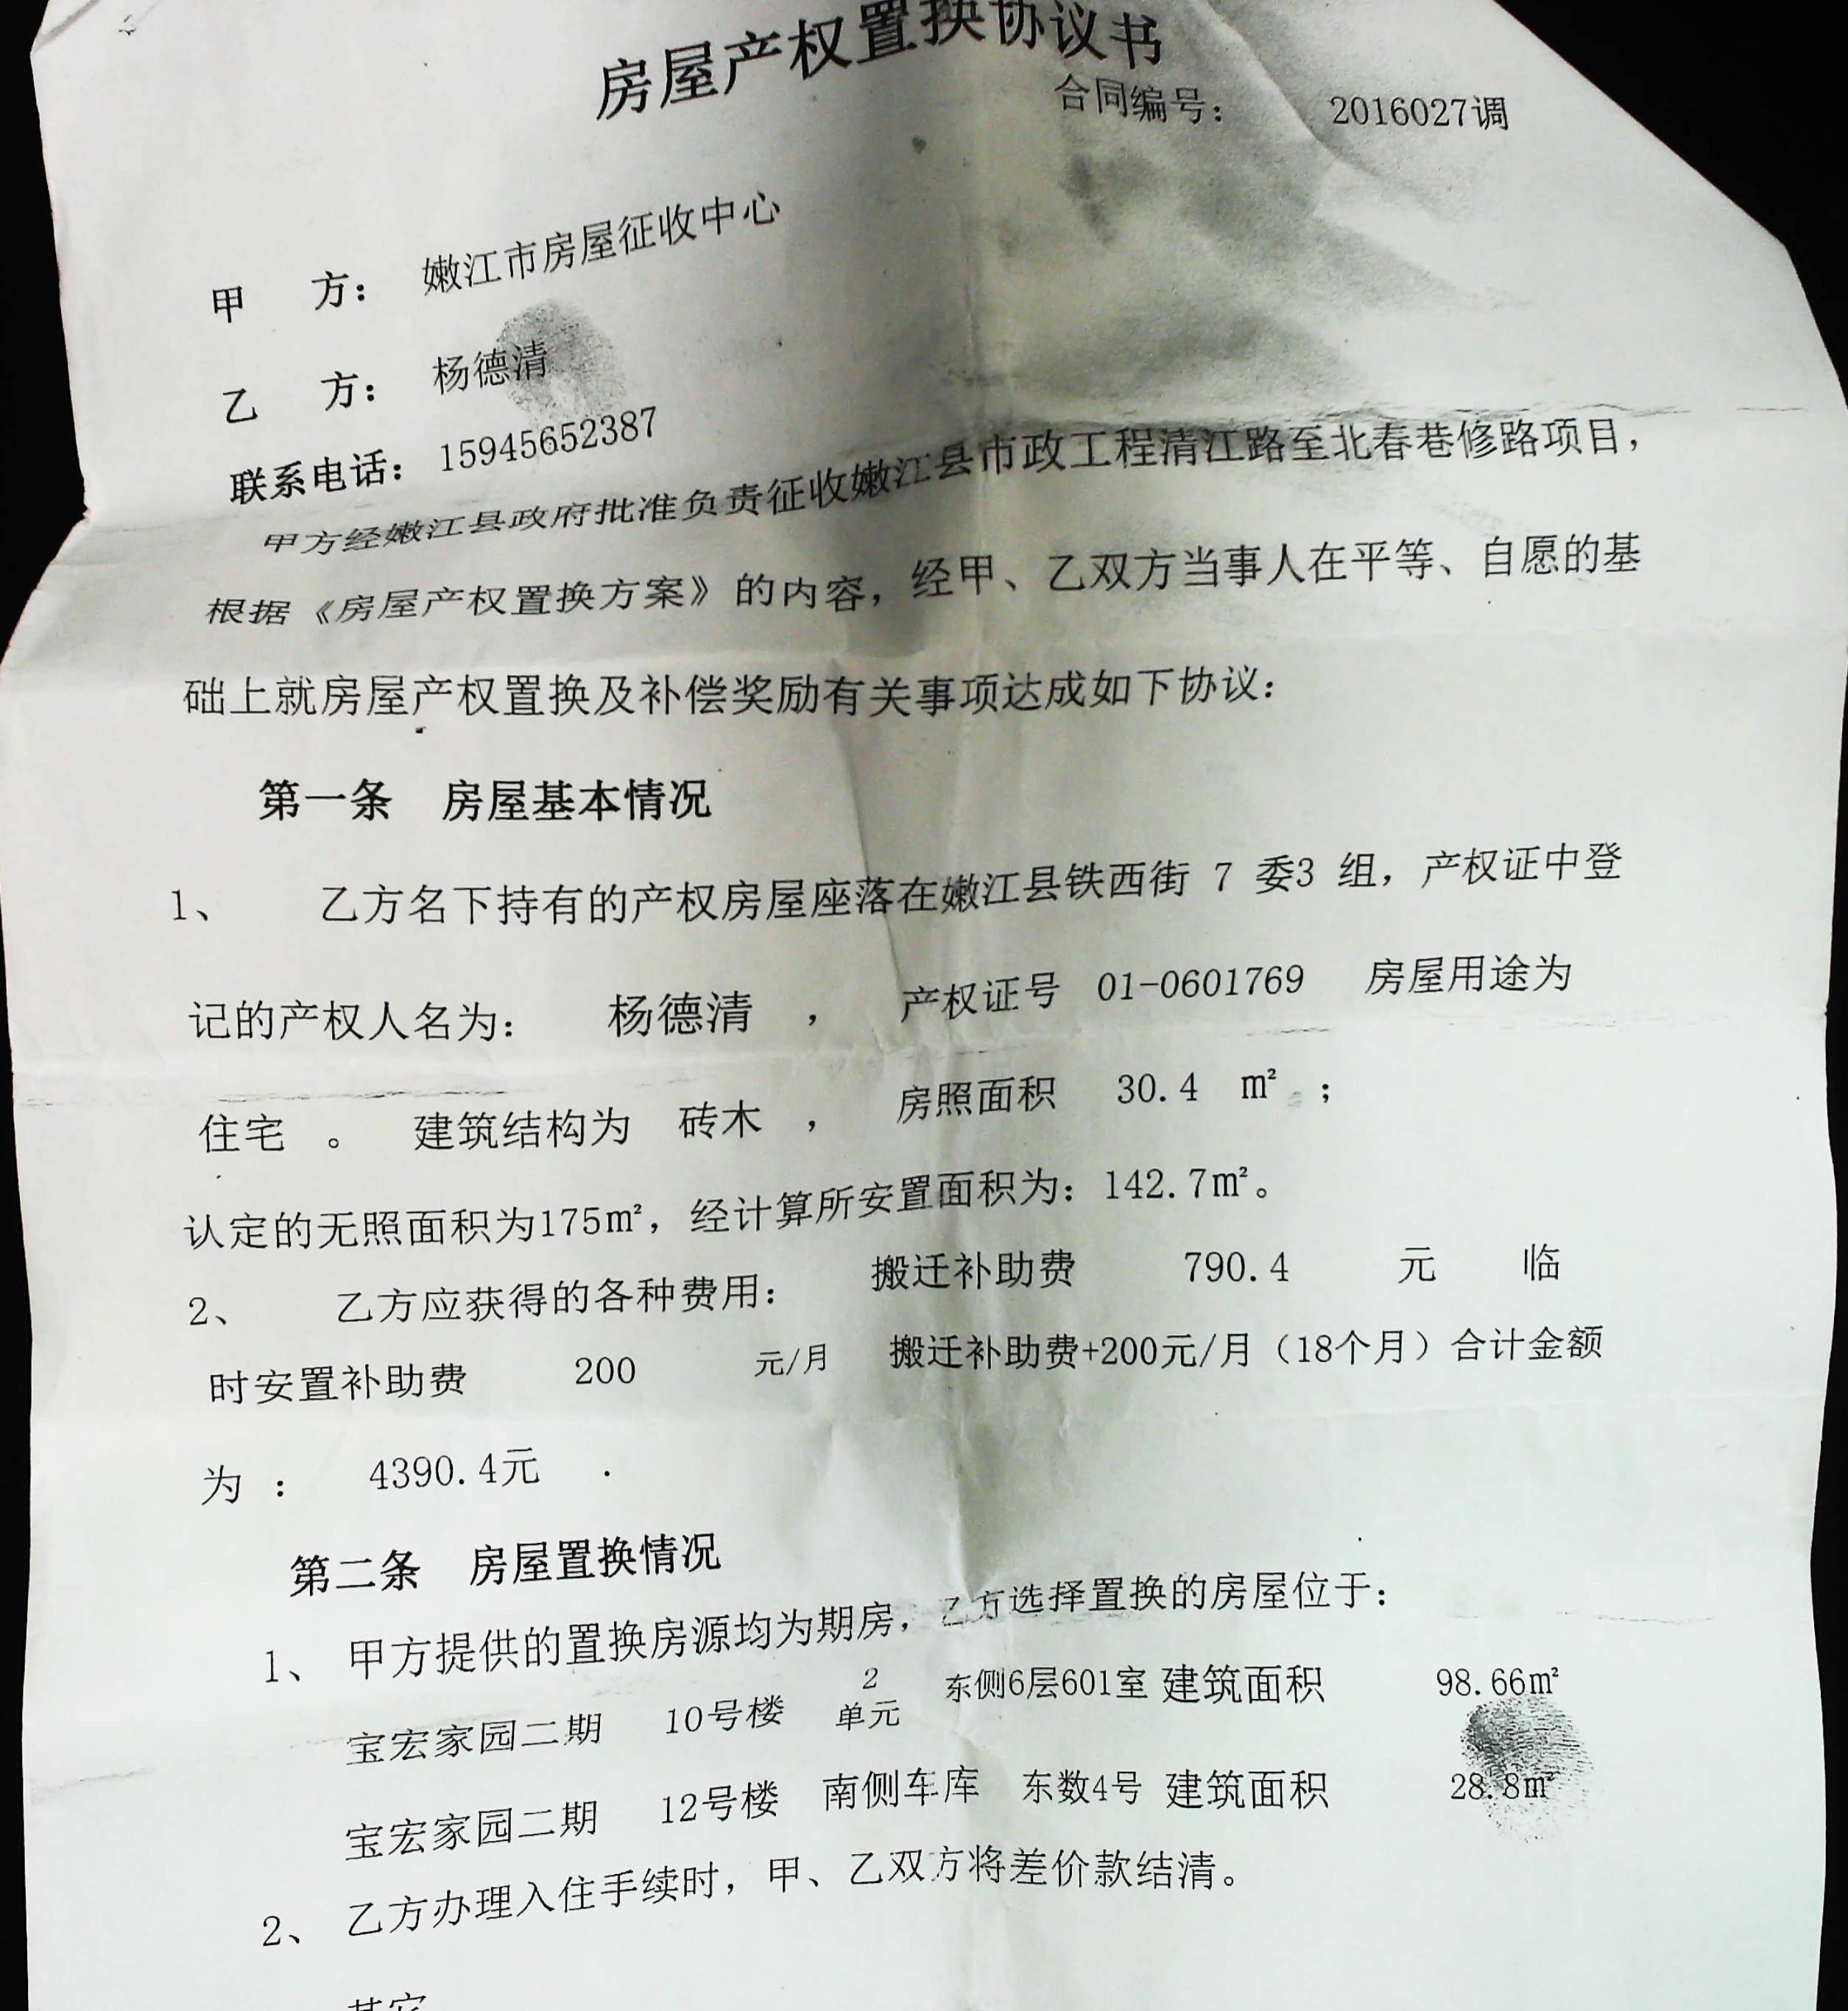 房屋产权置换协议书
合同编号： 2016027调
甲 方： 嫩江市房屋征收中心
乙 方： 杨德清
联系电话：15945652387
甲方经嫩江县政府批准负责征收嫩江县市政工程清江路至北春巷修路项目，
根据《房屋产权置换方案》的内容，经甲、乙双方当事人在平等、自愿的基
础上就房屋产权置换及补偿奖励有关事项达成如下协议：
第一条 房屋基本情况
1、 乙方名下持有的产权房屋座落在嫩江县铁西街 7 委3 组，产权证中登
记的产权人名为： 杨德清 ， 产权证号 01-0601769 房屋用途为
住宅 。 建筑结构为 砖木 ， 房照面积 30.4 m² ；
认定的无照面积为175m²，经计算所安置面积为：142.7m²。
2、 乙方应获得的各种费用： 搬迁补助费 790.4 元 临
时安置补助费 200 元/月 搬迁补助费+200元/月（18个月）合计金额
为 ： 4390.4元 .
第二条 房屋置换情况
1、 甲方提供的置换房源均为期房，乙方选择置换的房屋位于：
宝宏家园二期 10号楼 2单元 东侧6层601室 建筑面积 98.66m²
宝宏家园二期 12号楼 南侧车库 东数4号 建筑面积 28.8m²
2、 乙方办理入住手续时，甲、乙双方将差价款结清。